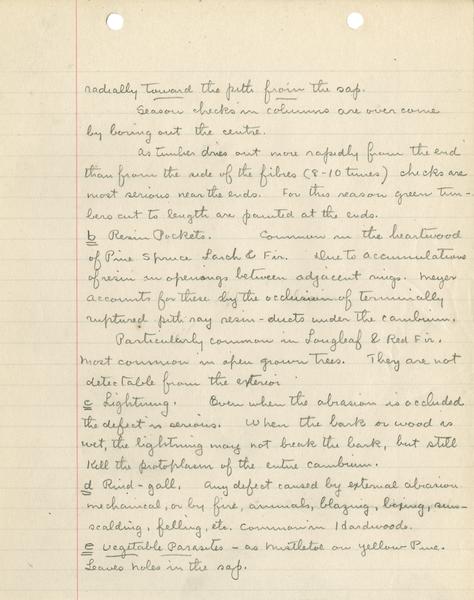 radially toward the pith from the sap.
Season checks in columns are overcome
by boring out the centre.
As timber dries out more rapidly from the end
than from the side of the fibres (8-10 times) checks are
most serious near the ends. For this reason green tim-
bers cut to length are painted at the ends.
b Resin Pockets. Common in the heartwood
of Pine Spruce Larch & Fir. Due to accumulations
of resin in openings between adjacent rings. Mayer
accounts for these by the occlusion of terminally
ruptured pith ray resin-ducts under the cambium.
Particularly common in Longleaf & Red Fir.
Most common in open grown trees. They are not
detectable from the exterior.
c Lightning. Even when the abrasion is occluded
the defect is serious. When the bark or wood is
wet, the lightning may not break the bark, but still
kill the protoplasm of the entire cambium.
d Rind-gall. Any defect caused by external abrasion
mechanical, or by fire, animals, blazing, sun-
scalding, felling, etc. Common in Hardwoods.
e Vegetable Parasites - as Mistletoe on Yellow Pine.
Leaves holes in the sap.